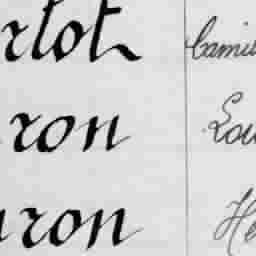 rlot Camil
ron Lou
uron He